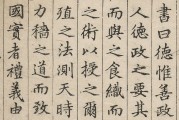 書曰德惟善政
人德政之要其
而與之食織而
之術以授之爾
殖之法測天時
力穡之道而致
國實者禮義由